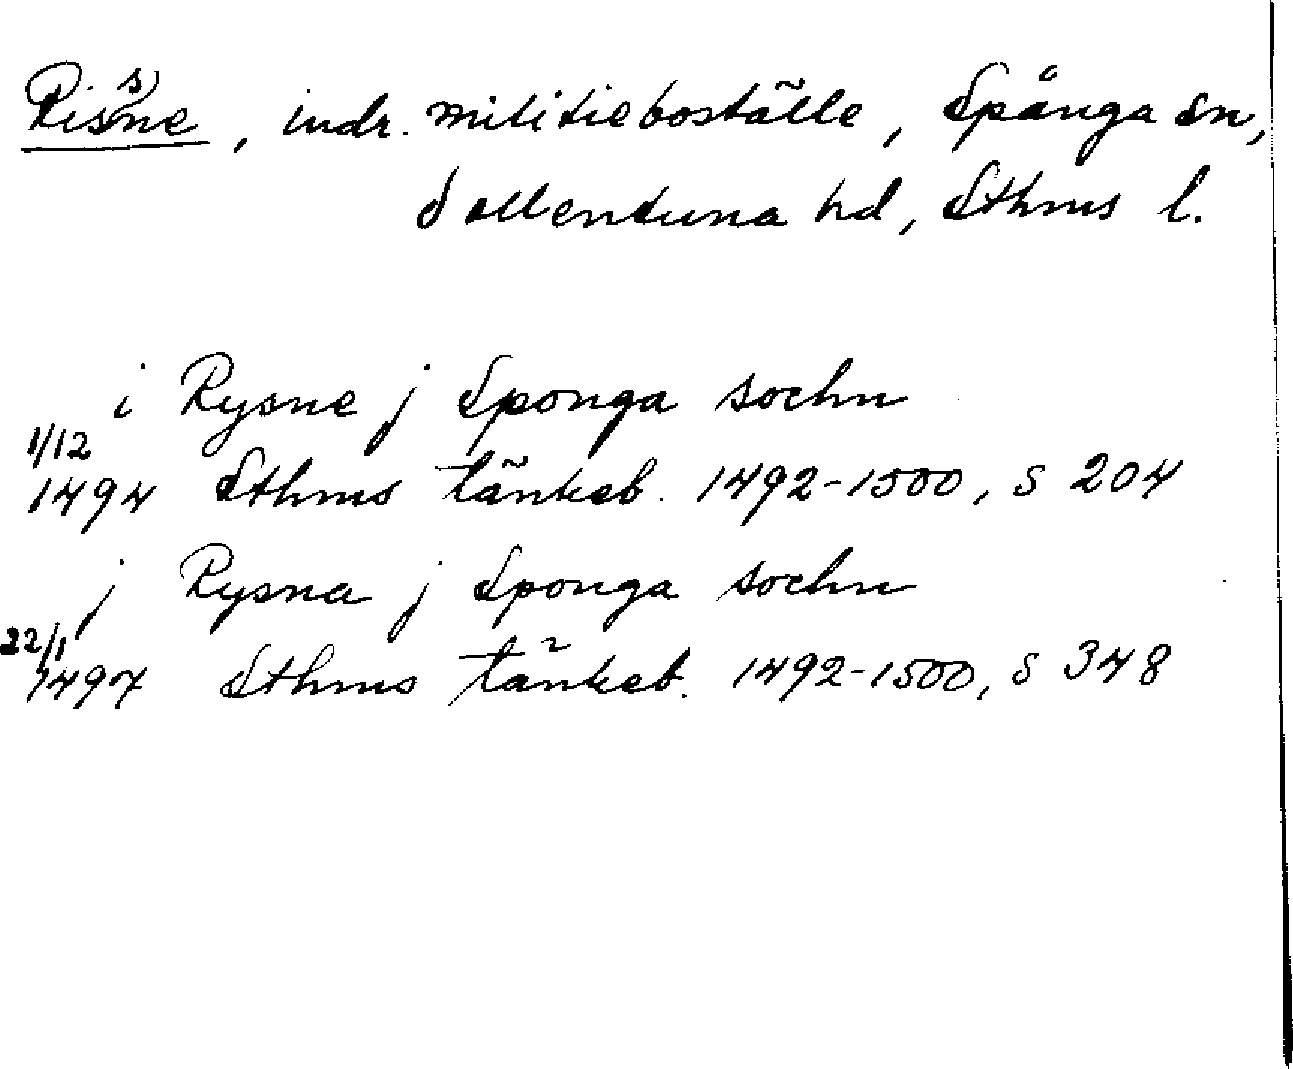 Risne, indr. militieboställe, Spånga sn,
Sollentuna hd, Sthms l.
i Rysne j Sponga sochn
1/12
1494 Sthms tänkeb. 1492-1500, s 204
j Rysna j Sponga sochn
22/1
1497 Sthms tänkeb. 1492-1500, s 348